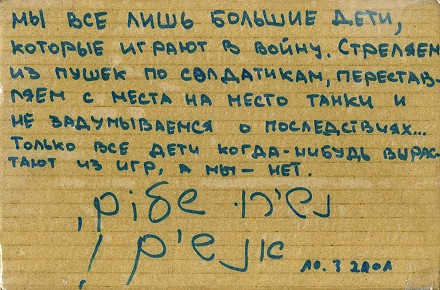 МЫ ВСЕ ЛИШЬ БОЛЬШИЕ ДЕТИ,
КОТОРЫЕ ИГРАЮТ В ВОЙНУ. СТРЕЛЯЕМ
ИЗ ПУШЕК ПО СОЛДАТИКАМ, ПЕРЕСТАВ-
ЛЯЕМ С МЕСТА НА МЕСТО ТАНКИ И
НЕ ЗАДУМЫВАЕМСЯ О ПОСЛЕДСТВИЯХ...
ТОЛЬКО ВСЕ ДЕТИ КОГДА-НИБУДЬ ВЫРАС-
ТАЮТ ИЗ ИГР, А МЫ - НЕТ.
תשירו שלום,
אנשים!
10.3 2001